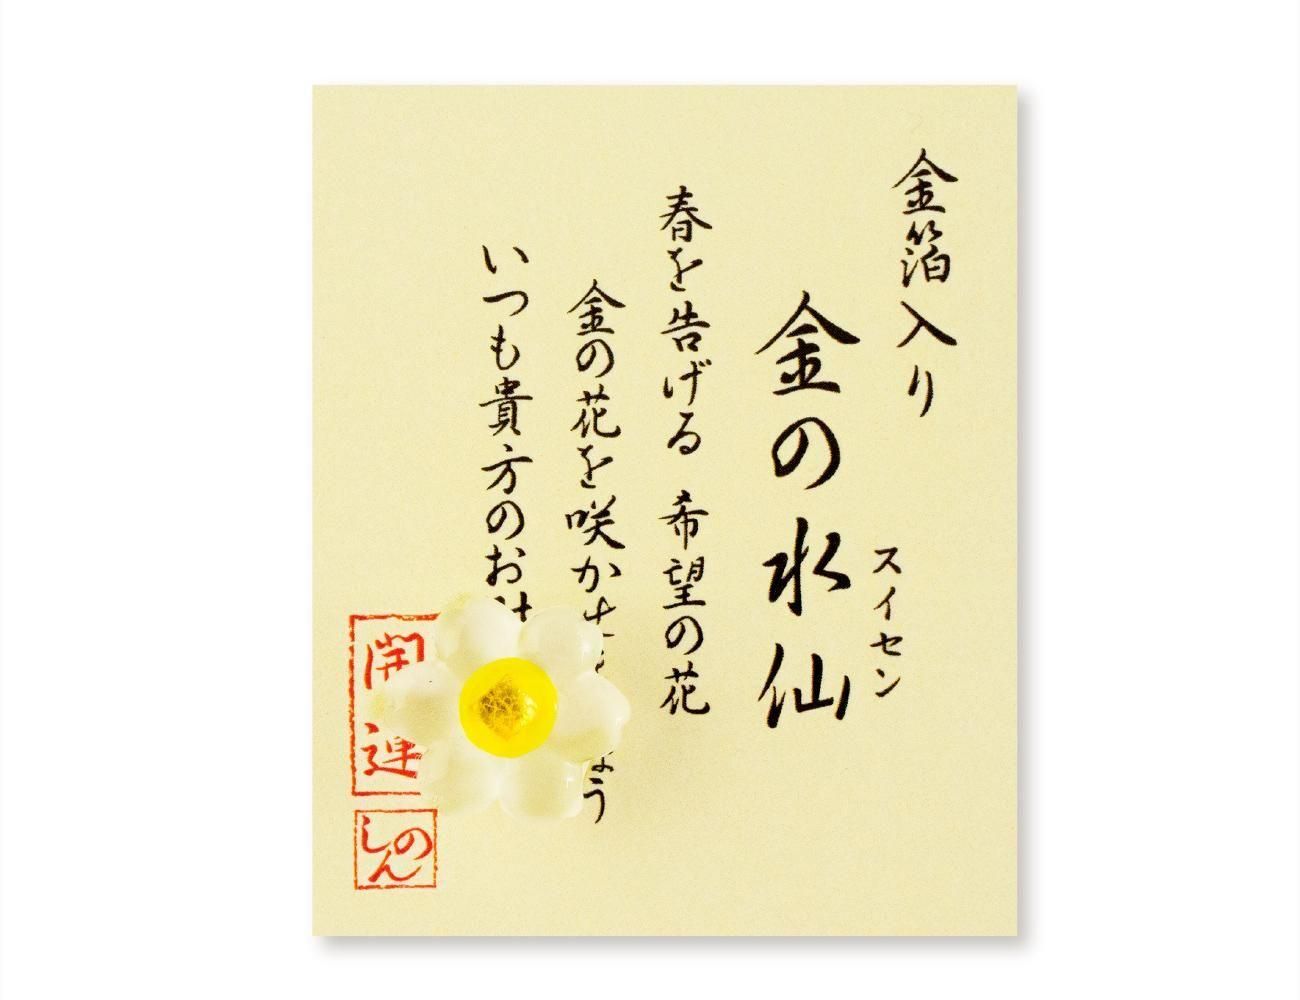 金箔入り
スイセン
金の水仙
春を告げる 希望の花
金の花を咲かせ
ょう
いつも貴方のお
開運
のんし